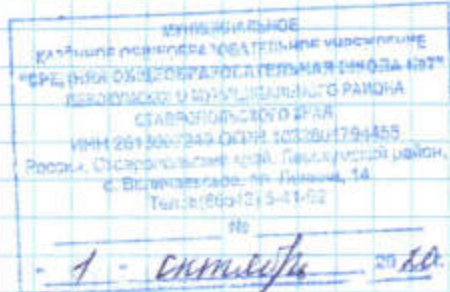 МУНИЦИПАЛЬНОЕ
КАЗЁННОЕ ОБЩЕОБРАЗОВАТЕЛЬНОЕ УЧРЕЖДЕНИЕ
"СРЕДНЯЯ ОБЩЕОБРАЗОВАТЕЛЬНАЯ ШКОЛА №7"
ЛЕВОКУМСКОГО МУНИЦИПАЛЬНОГО РАЙОНА
СТАВРОПОЛЬСКОГО КРАЯ
ИНН ОГРН
Россия, Ставропольский край, Левокумский район,
с. Величаевское, Ленина, 14
Тел. 5-41-62
№
- 1 - октября 20 20г.